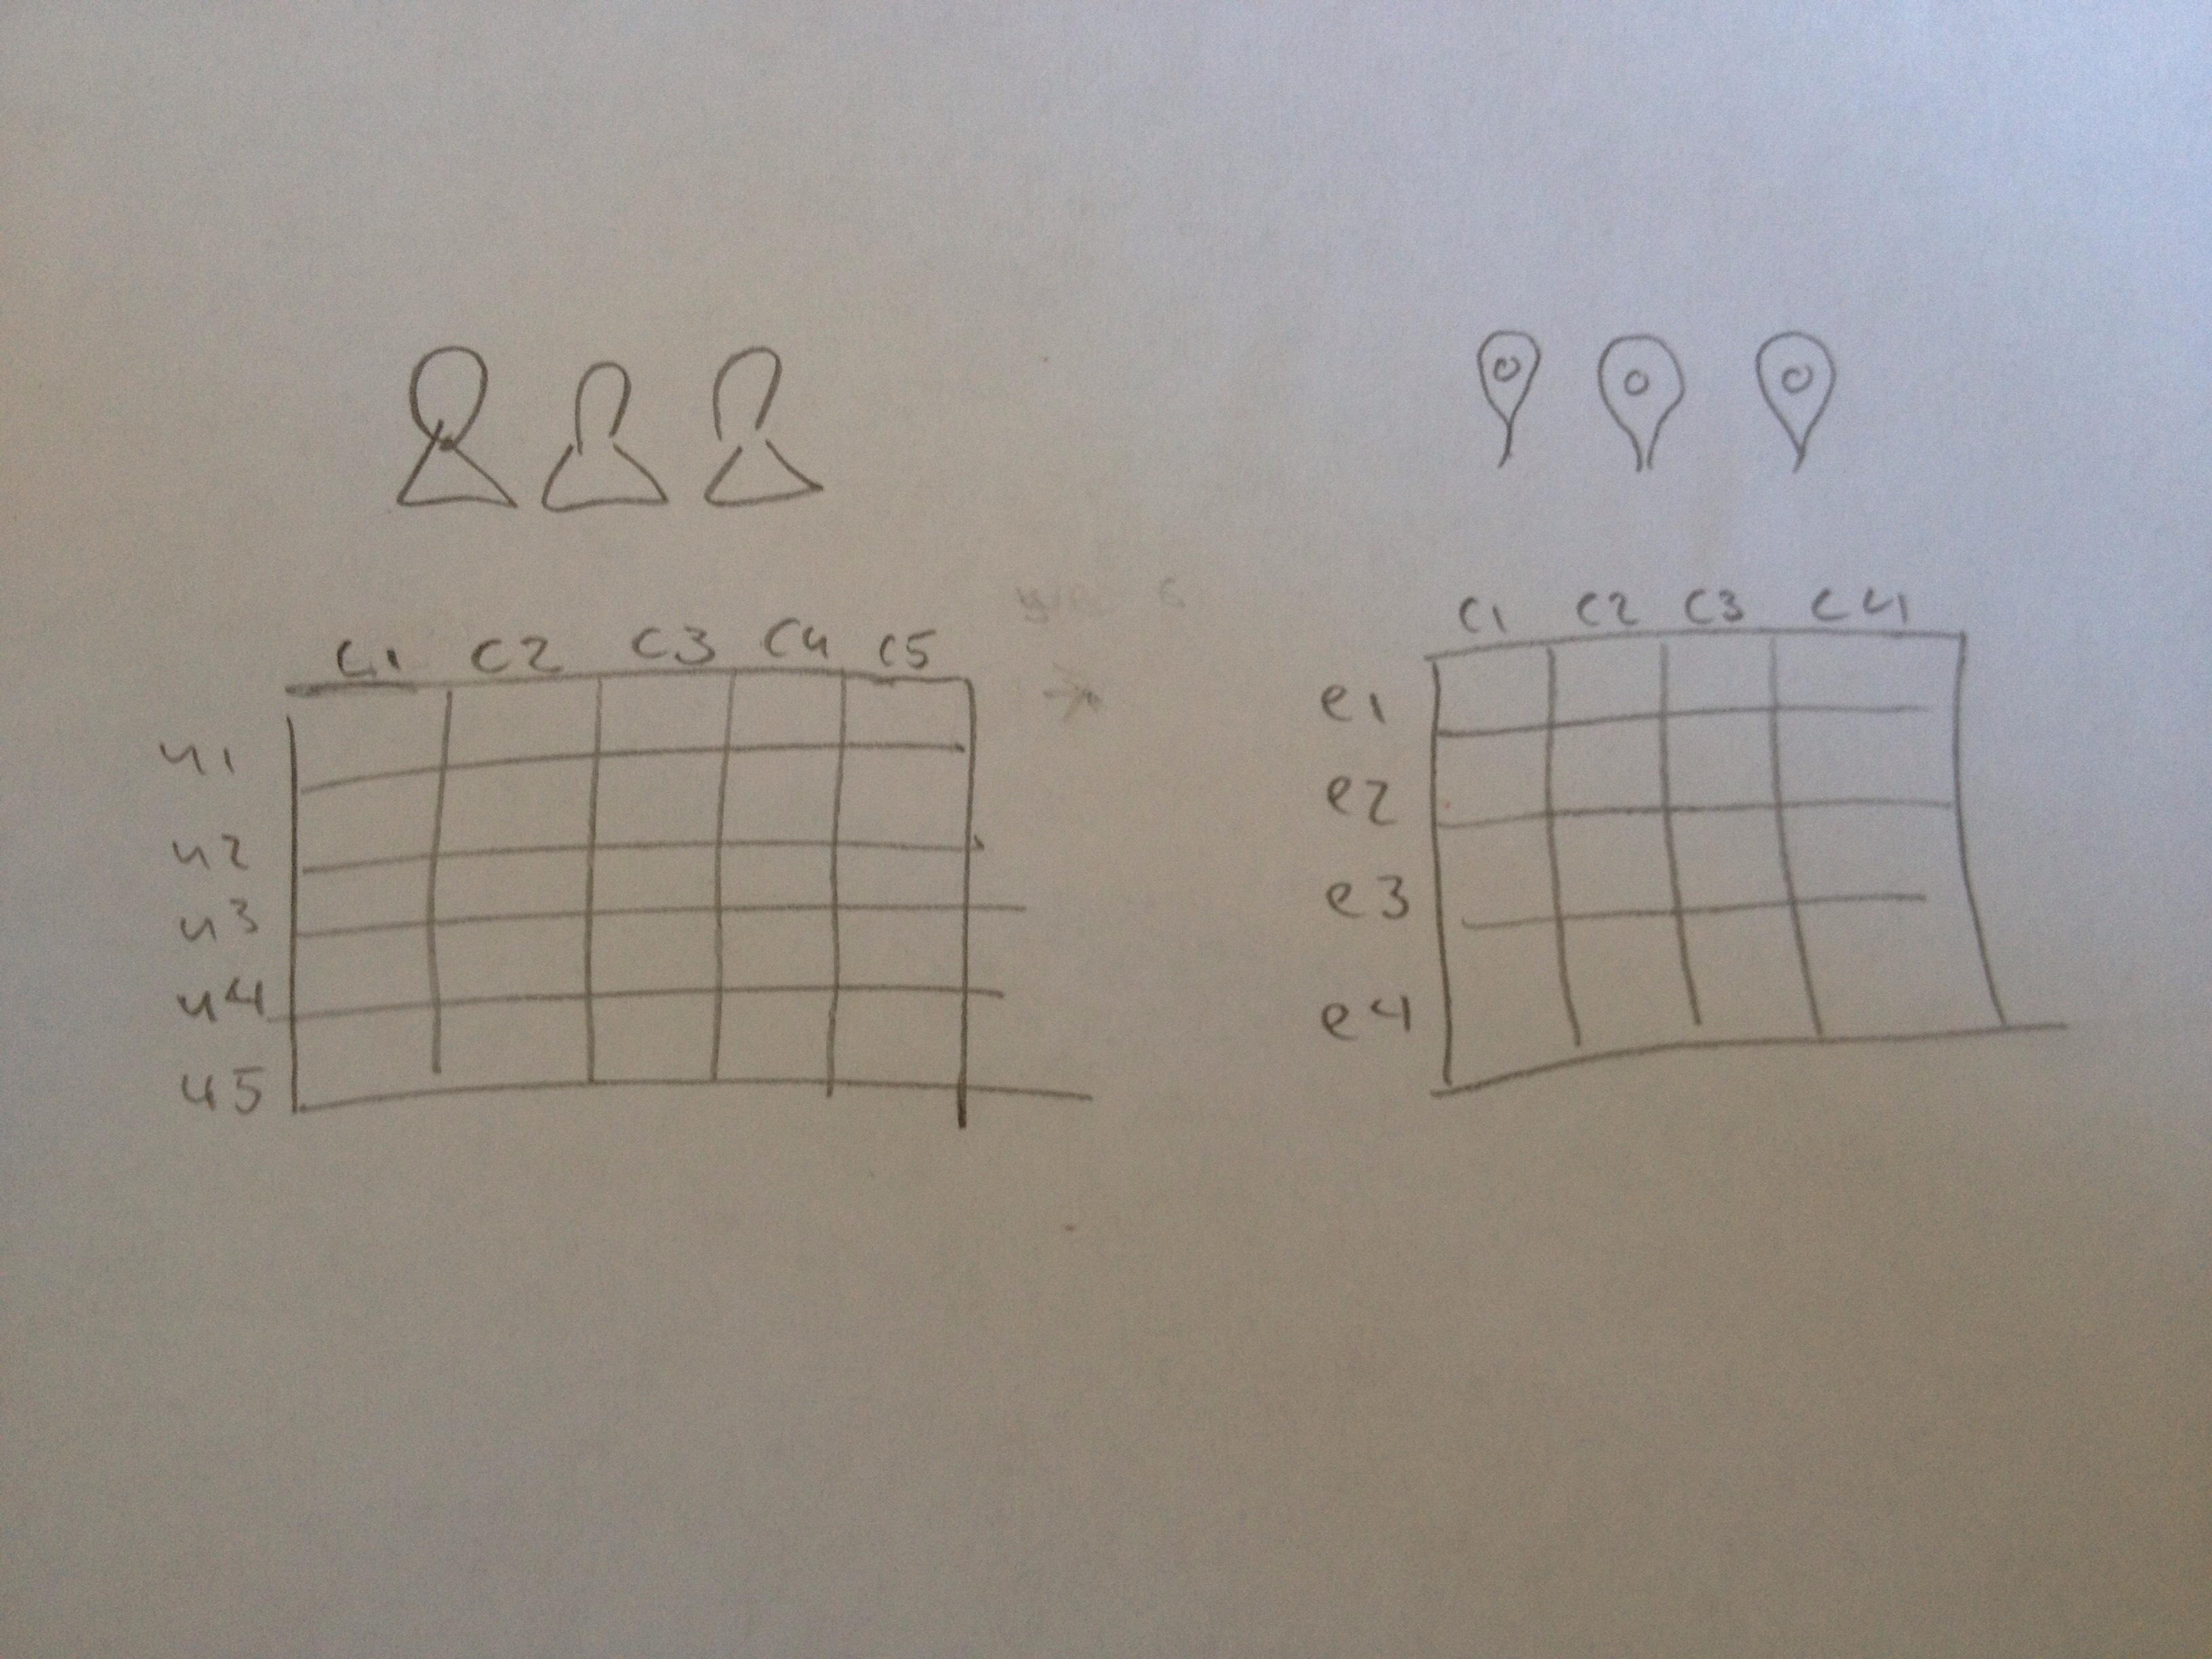 c1 c2 c3 c4 c5
u1
u2
u3
u4
u5
c1 c2 c3 c4
e1
e2
e3
e4